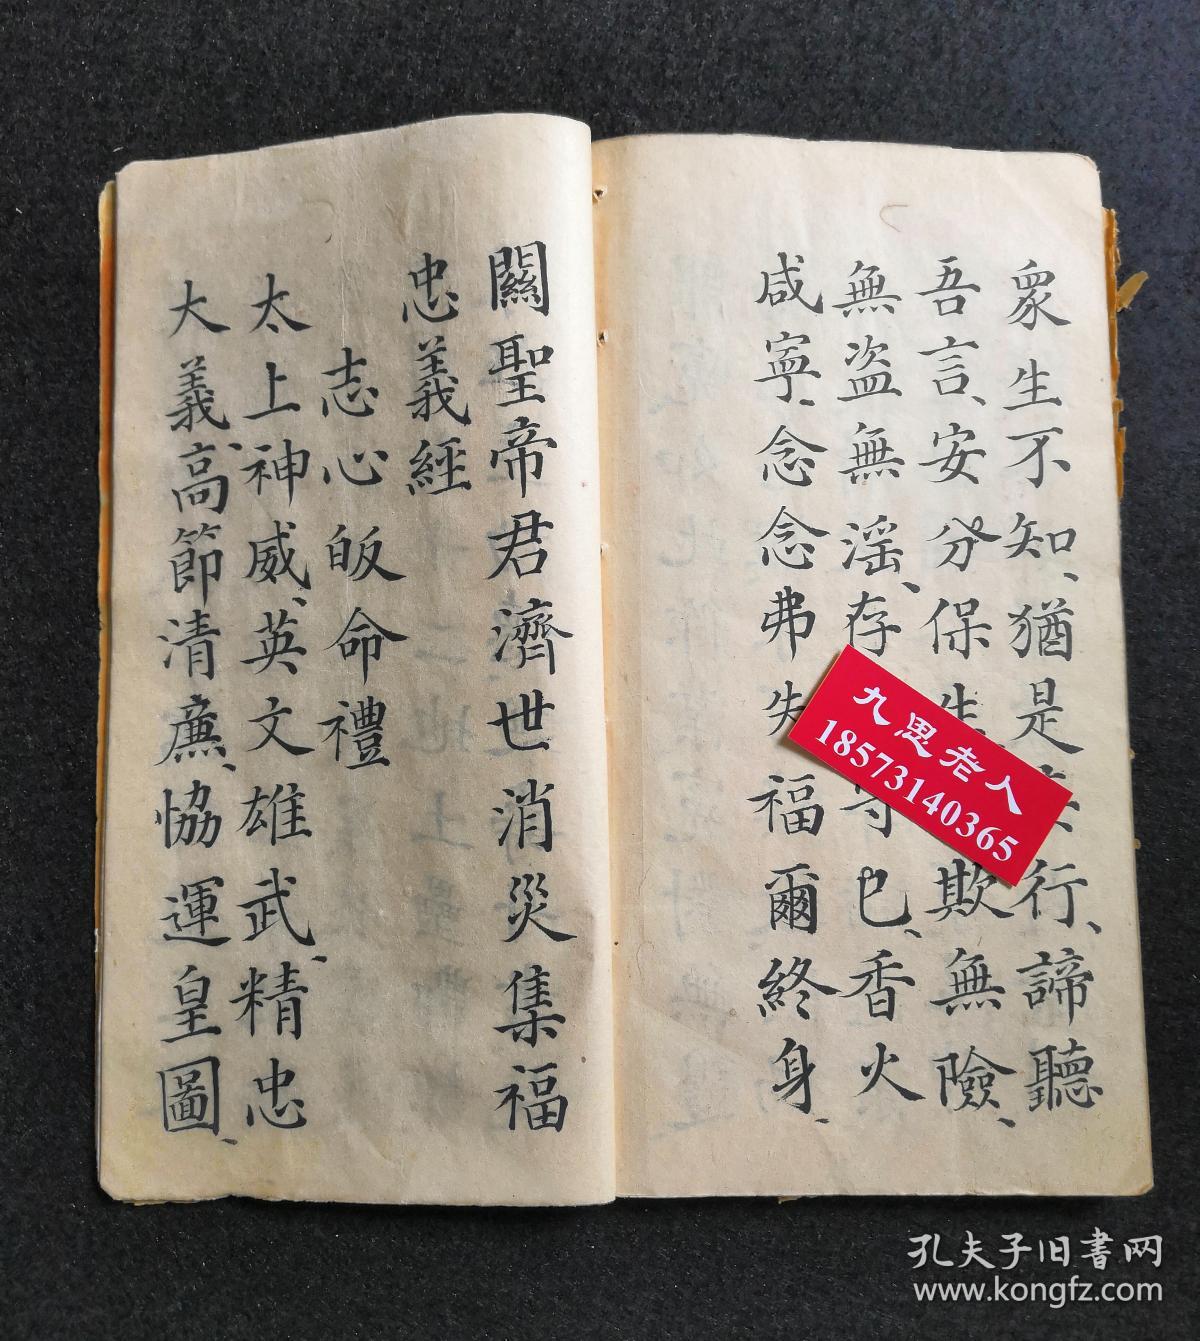 眾生不知、猶是行、諦聽
吾言、安分保生欺無險、
無盗無滛、存守已、香火
咸寧、念念弗失福爾終身、
關聖帝君濟世消災集福
忠義經
志心皈命禮
太上神威、英文雄武、精忠
大義、高節清廉、恊運皇圖、
九思老人
18573140365
孔夫子旧書网
www.kongfz.com